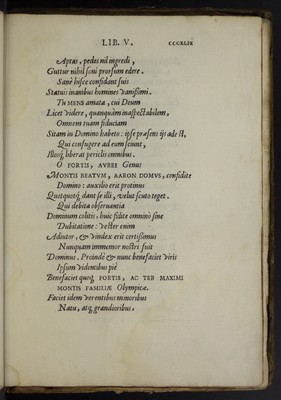 LIB. V. CCCXLIX
Aptas, pedes nil ingredi,
Guttur nihil soni prorsum edere.
Sanè hisce confidant suis
Statuis inanibus homines vanissimi.
Tu MENS amata, cui Deum
Licet videre, quanquàm inaspectabilem,
Omnem tuam fiduciam
Sitam in Domino habeto: ipse præsens ijs adest,
Qui confugere ad eum sciunt,
Illosq; liberat periclis omnibus.
O FORTIS, AVREE Genus
MONTIS BEATVM, AARON DOMVS, confidite
Domino: auxilio erat protinus
Quotquot q; dant se illi, velut scuto teget.
Qui debita obseruantia
Dominum colitis: huic fidite omninò sine
Dubitatione: vester enim
Adiutor, & vindex erit certissimus
Nunquam immemor nostri fuit
Dominus. Proindè & nunc benefaciet viris
Ipsum videntibus piè
Benefaciet quoq; FORTIS, AC TER MAXIMI
MONTIS FAMILIÆ Olympicæ.
Faciet idem verentibus minoribus
Natu, atq; grandioribus.